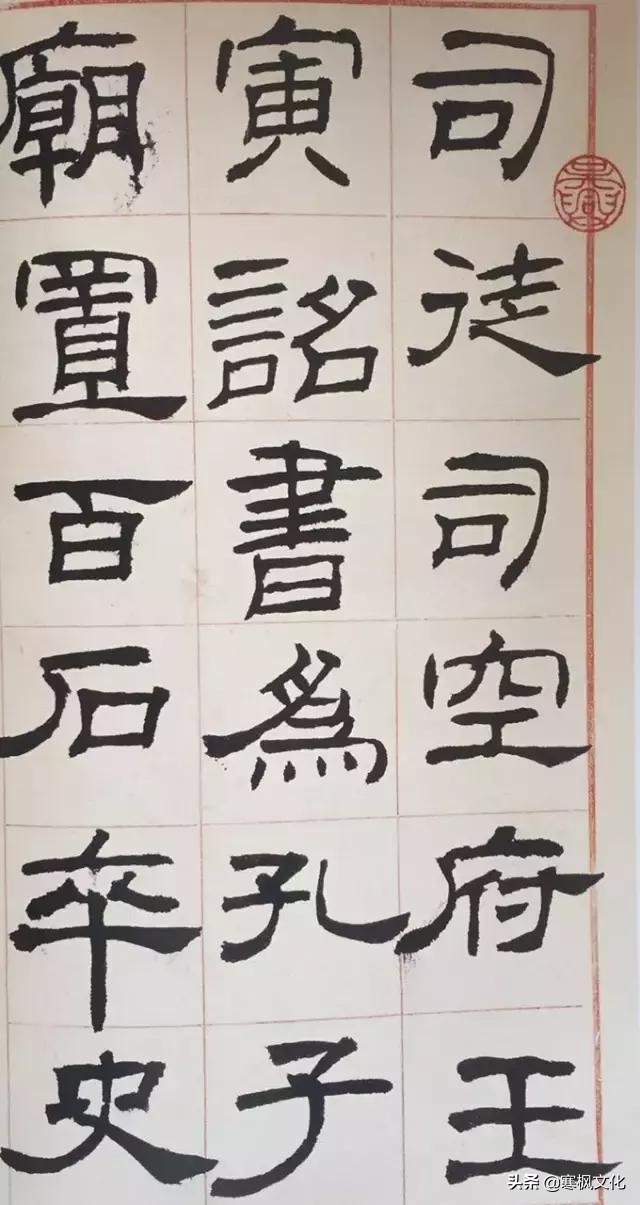 司徒司空府壬
寅詔書爲孔子
廟置百石卒史
头条 @寒枫文化